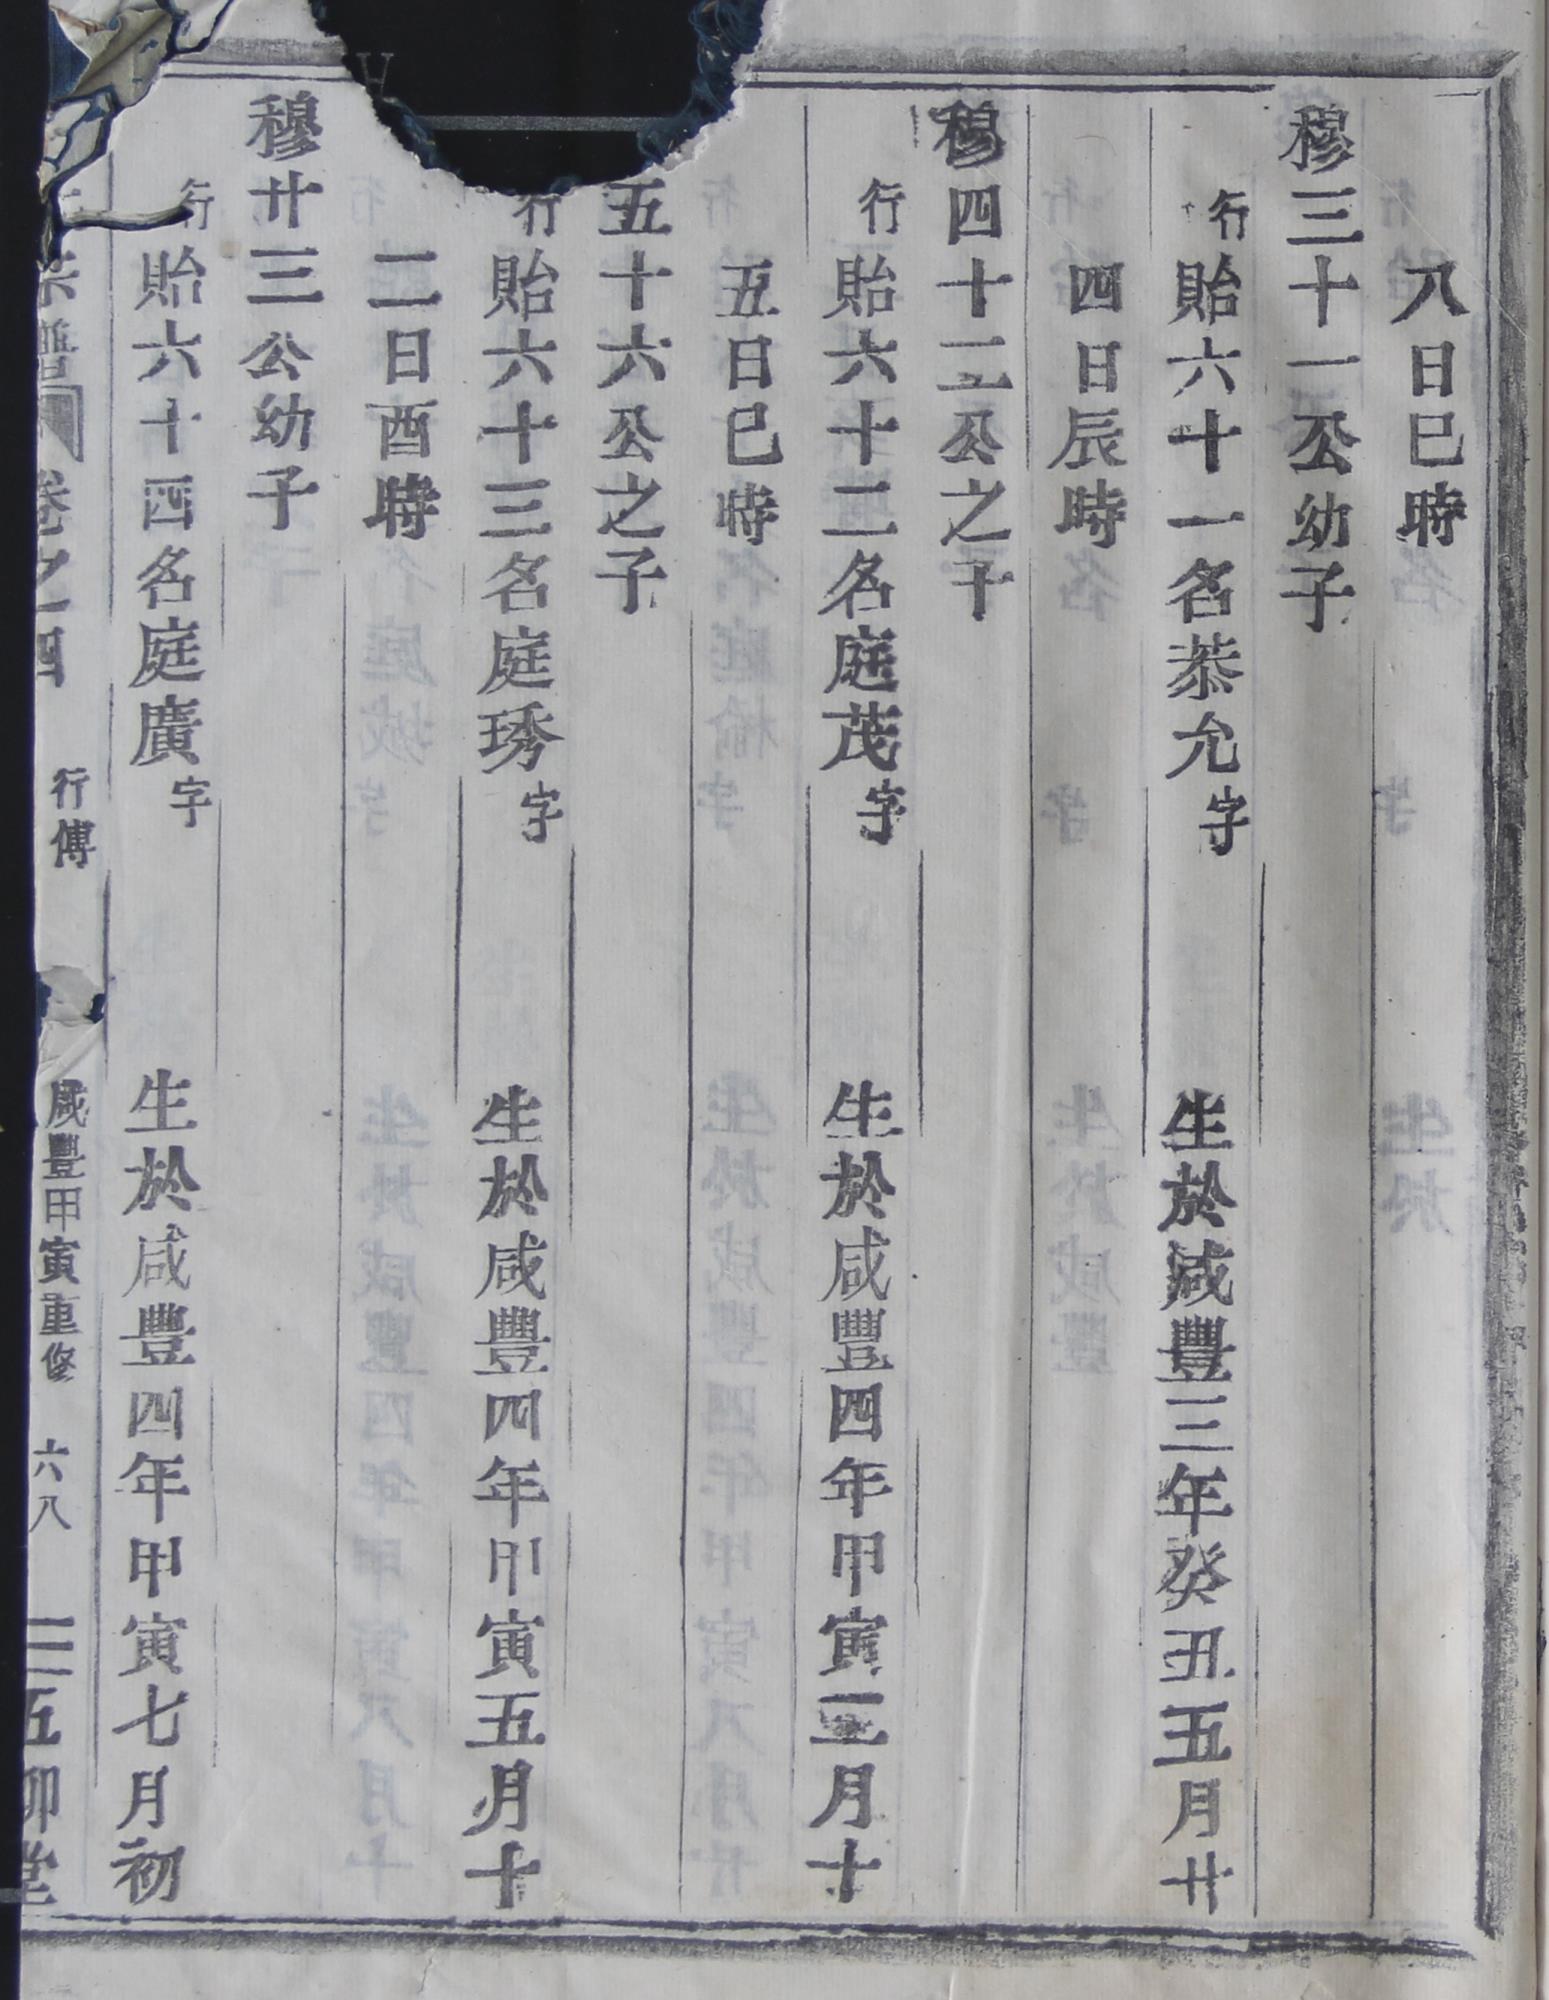 八日巳時
穆三十一公幼子
行貽六十一名恭允字 生於咸豐三年癸丑五月廿
四日辰時
穆四十二公之子
行貽六十二名庭茂字 生於咸豐四年甲寅三月十
五日巳時
五十六公之子
行貽六十三名庭琇字 生於咸豐四年甲寅五月十
二日酉時
穆廿三公幼子
行貽六十四名庭廣字 生於咸豐四年甲寅七月初
宗譜 卷之四 行傳 咸豐甲寅重修 六八 五柳堂